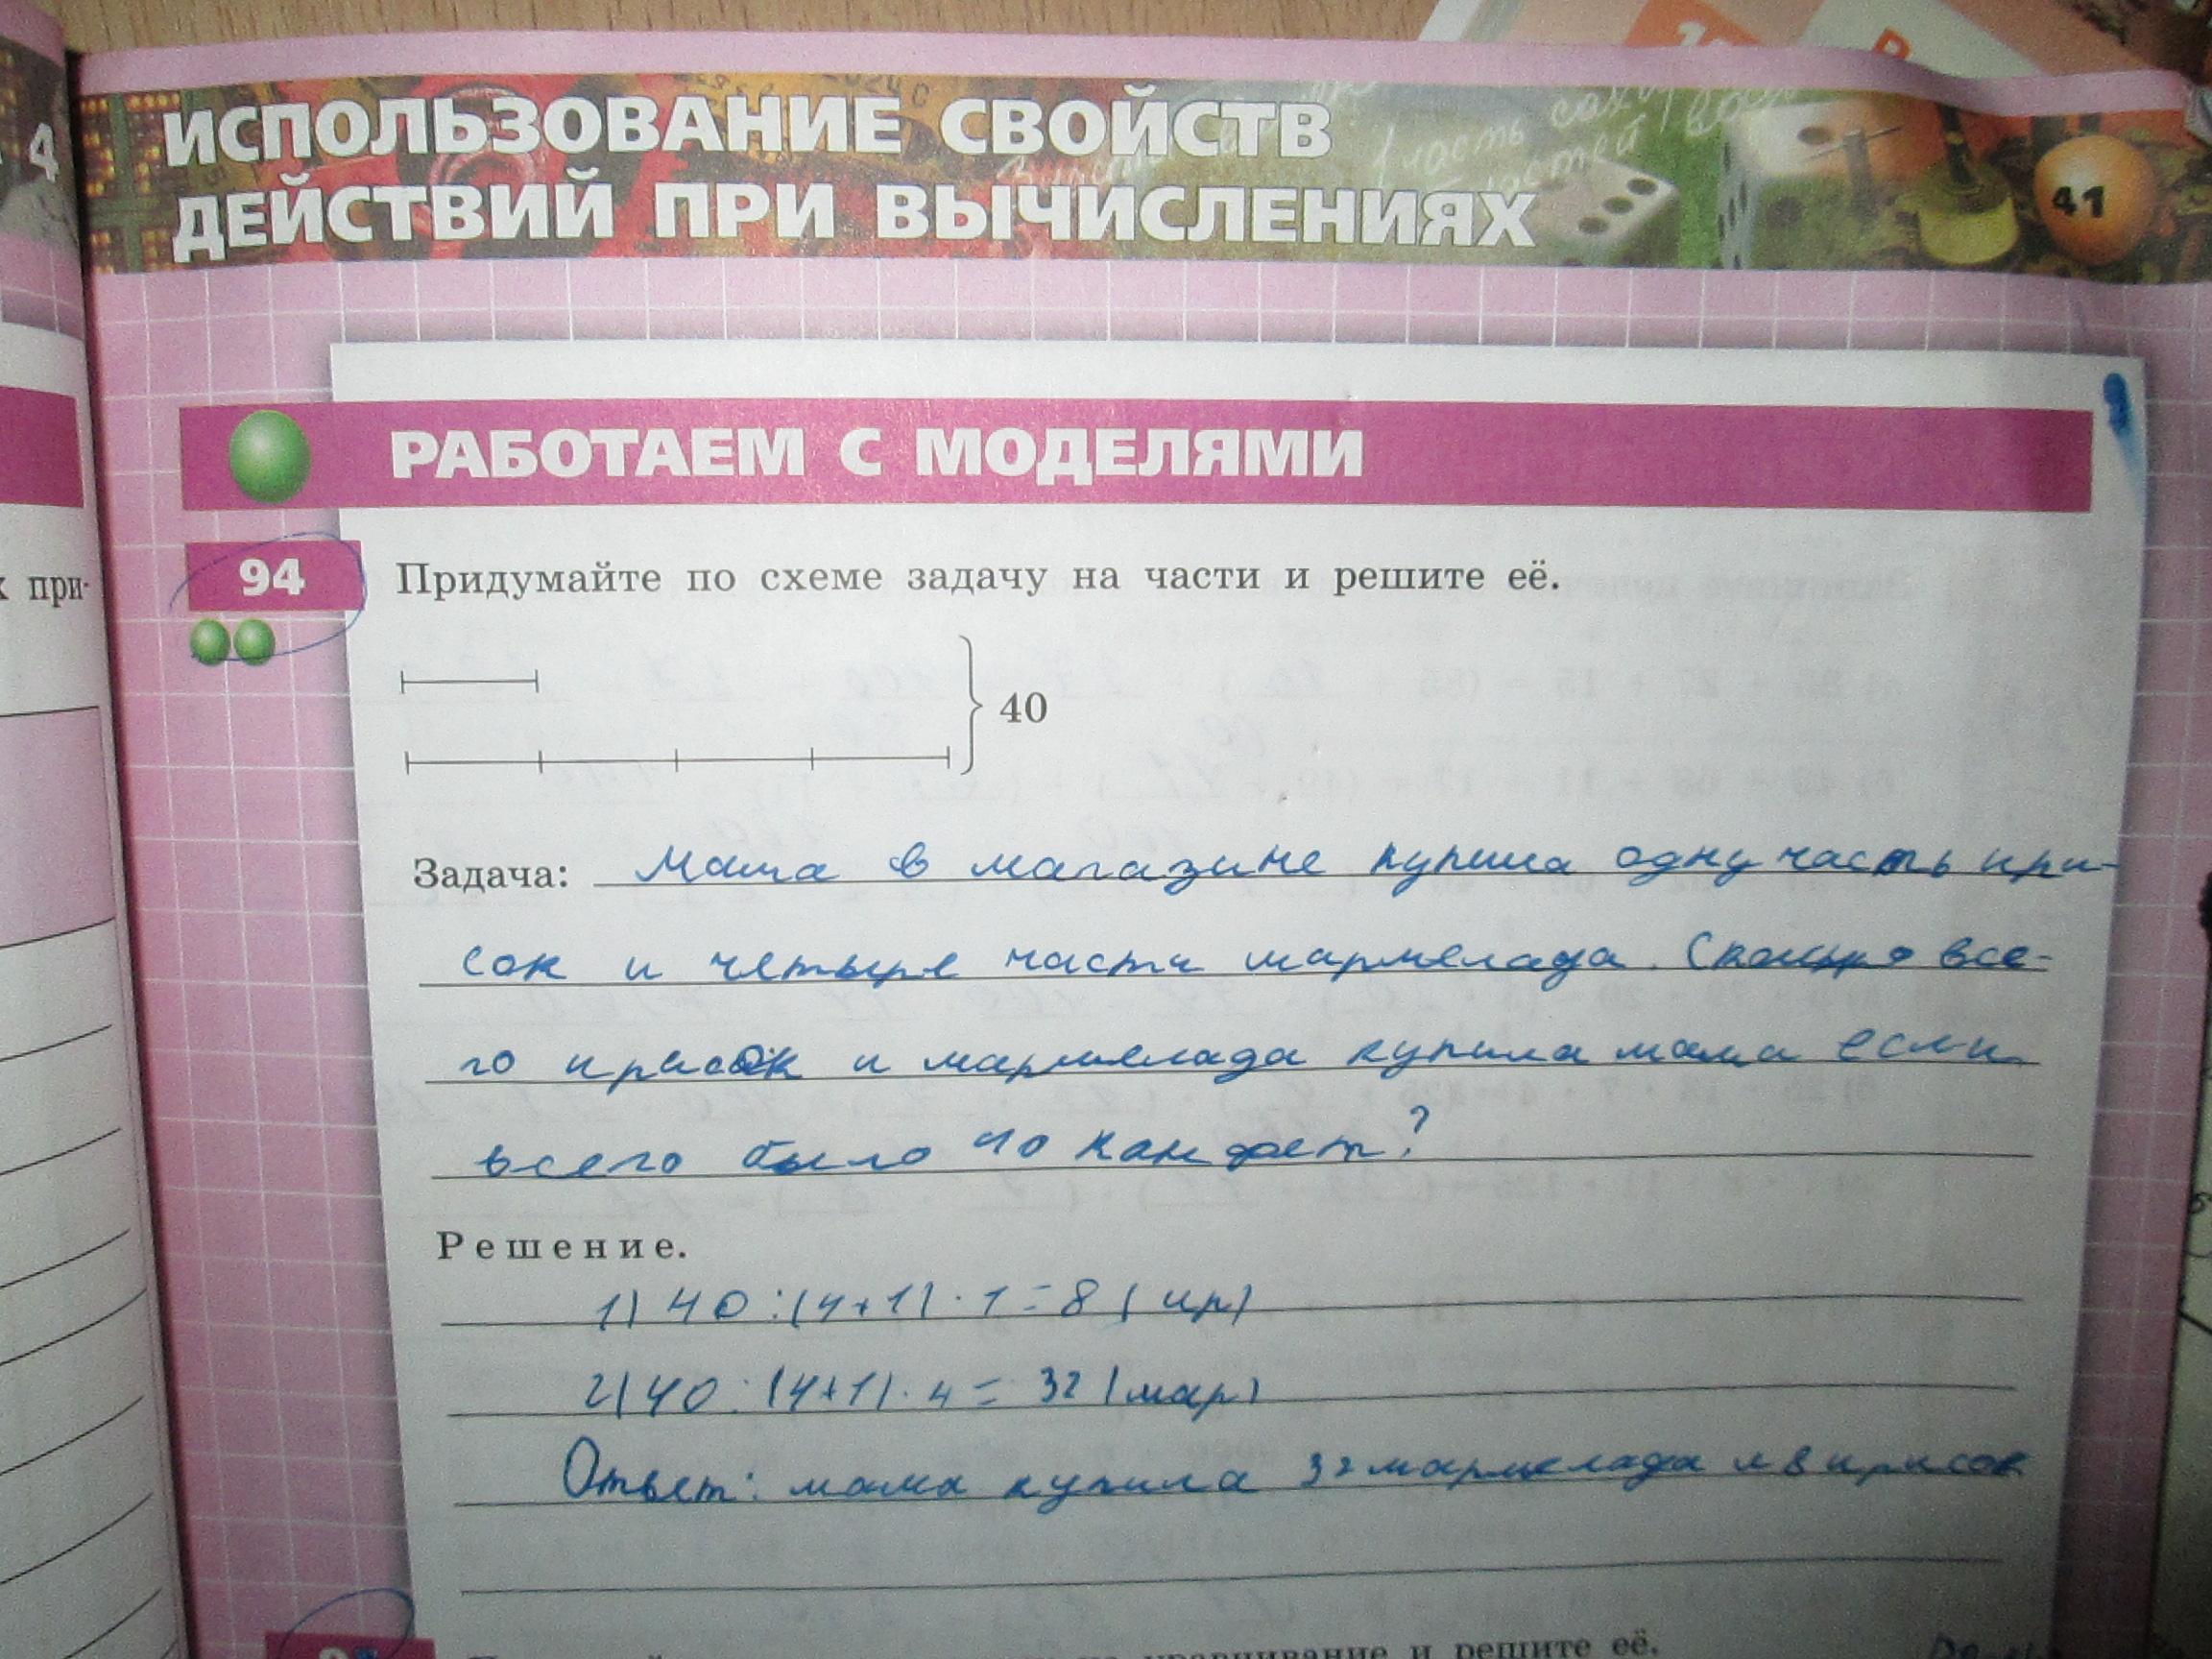 4
ИСПОЛЬЗОВАНИЕ СВОЙСТВ
ДЕЙСТВИЙ ПРИ ВЫЧИСЛЕНИЯХ
41
РАБОТАЕМ С МОДЕЛЯМИ
х при-
94 Придумайте по схеме задачу на части и решите её.
40
Задача: Мама в магазине купила одну часть ири-
сок и четыре части мармелада. Сколько все-
го ирисок и мармелада купила мама если
всего было 40 канфет?
Решение.
1) 40:(4+1)·1=8 (ир)
2) 40:(4+1)·4=32 (мар)
Ответ: мама купила 32 мармелада и 8 ирисок
и решите её.